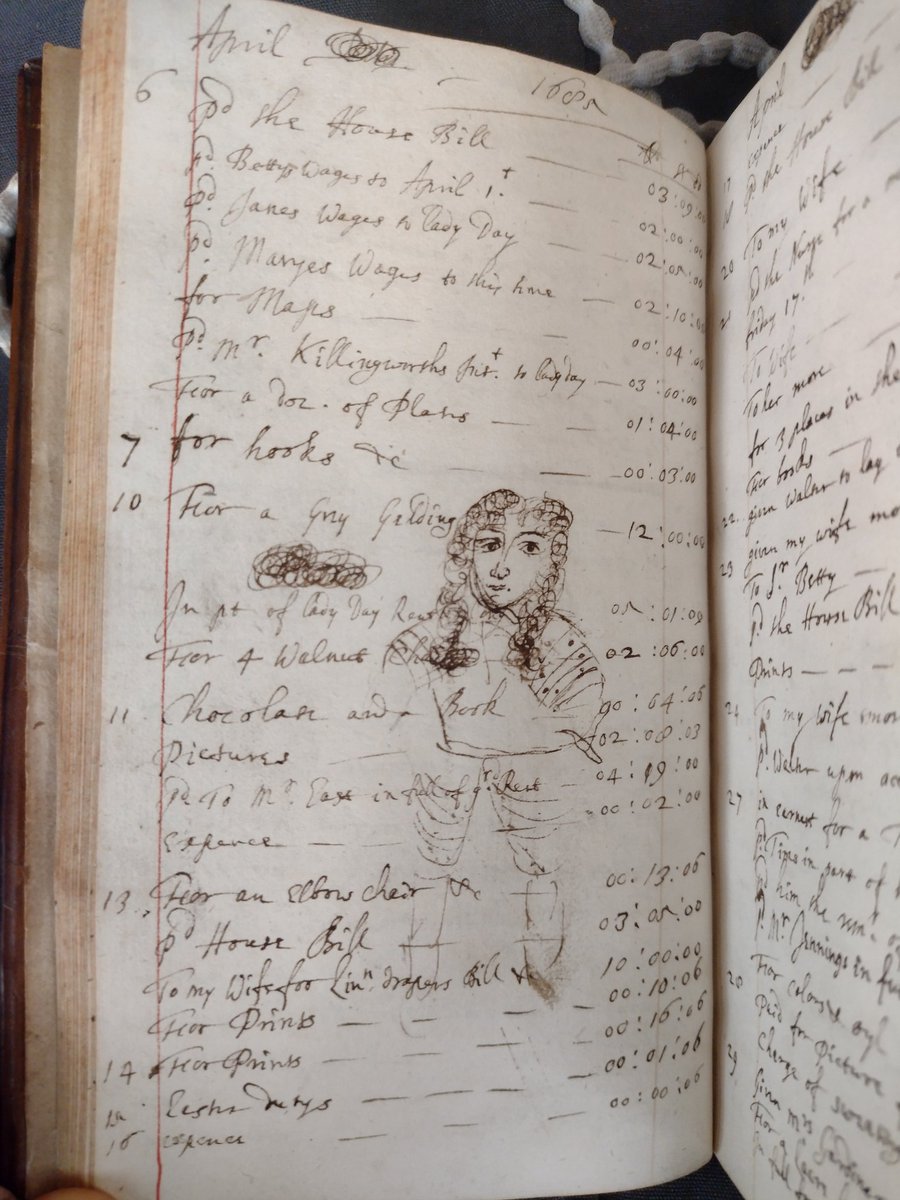 April 1685
6 pd the House Bill — 03:09:00
pd. Bettys Wages to April 1.t — 02:00:00
pd. Janes Wages to lady Day — 02:05:00
pd. Maryes Wages to this time — 02:10:00
for Mapps — 00:04:00
pd. Mr. Killingworths Int. to lady day — 03:00:00
For a doz. of Plates — 01:04:00
7 for hooks &c — 00:03:00
10 For a Grey Gelding — 12:00:00
In pt of lady Day Rent 05:01:09
For 4 Walnut Chairs 02:06:00
11 Chocolate and a Book 00:04:06
Pictures — 02:08:03
pd To Mr. East in full of qr. Rent — 04:19:00
expence — 00:02:00
13 For an elbow chair &c 00:13:06
pd House Bill — 03:05:00
To my Wife for Linn drapers Bill 10:00:00
For Prints — 00:10:06
14 For Prints — 00:16:06
15 Easter dutys — 00:01:06
16 expence — 00:00:06
April
expence
17
18 pd the House Bill
To my Wife
20 pd the Nurse for a
friday 17.th
21 To Wife
To her more
for 3 places in the
For books
22. given Walter to lay
given my wife mo
23 To Sr. Betty
pd the House Bill
Prints — — —
24 To my wife more
pd. Walter upon acc
27 in earnest for a
pd Tims in part of
pd him the
pd. Mr. Jennings in fu
28 For colours oyl
Paid for Picture
29 Charge of
Given Mrs
For a